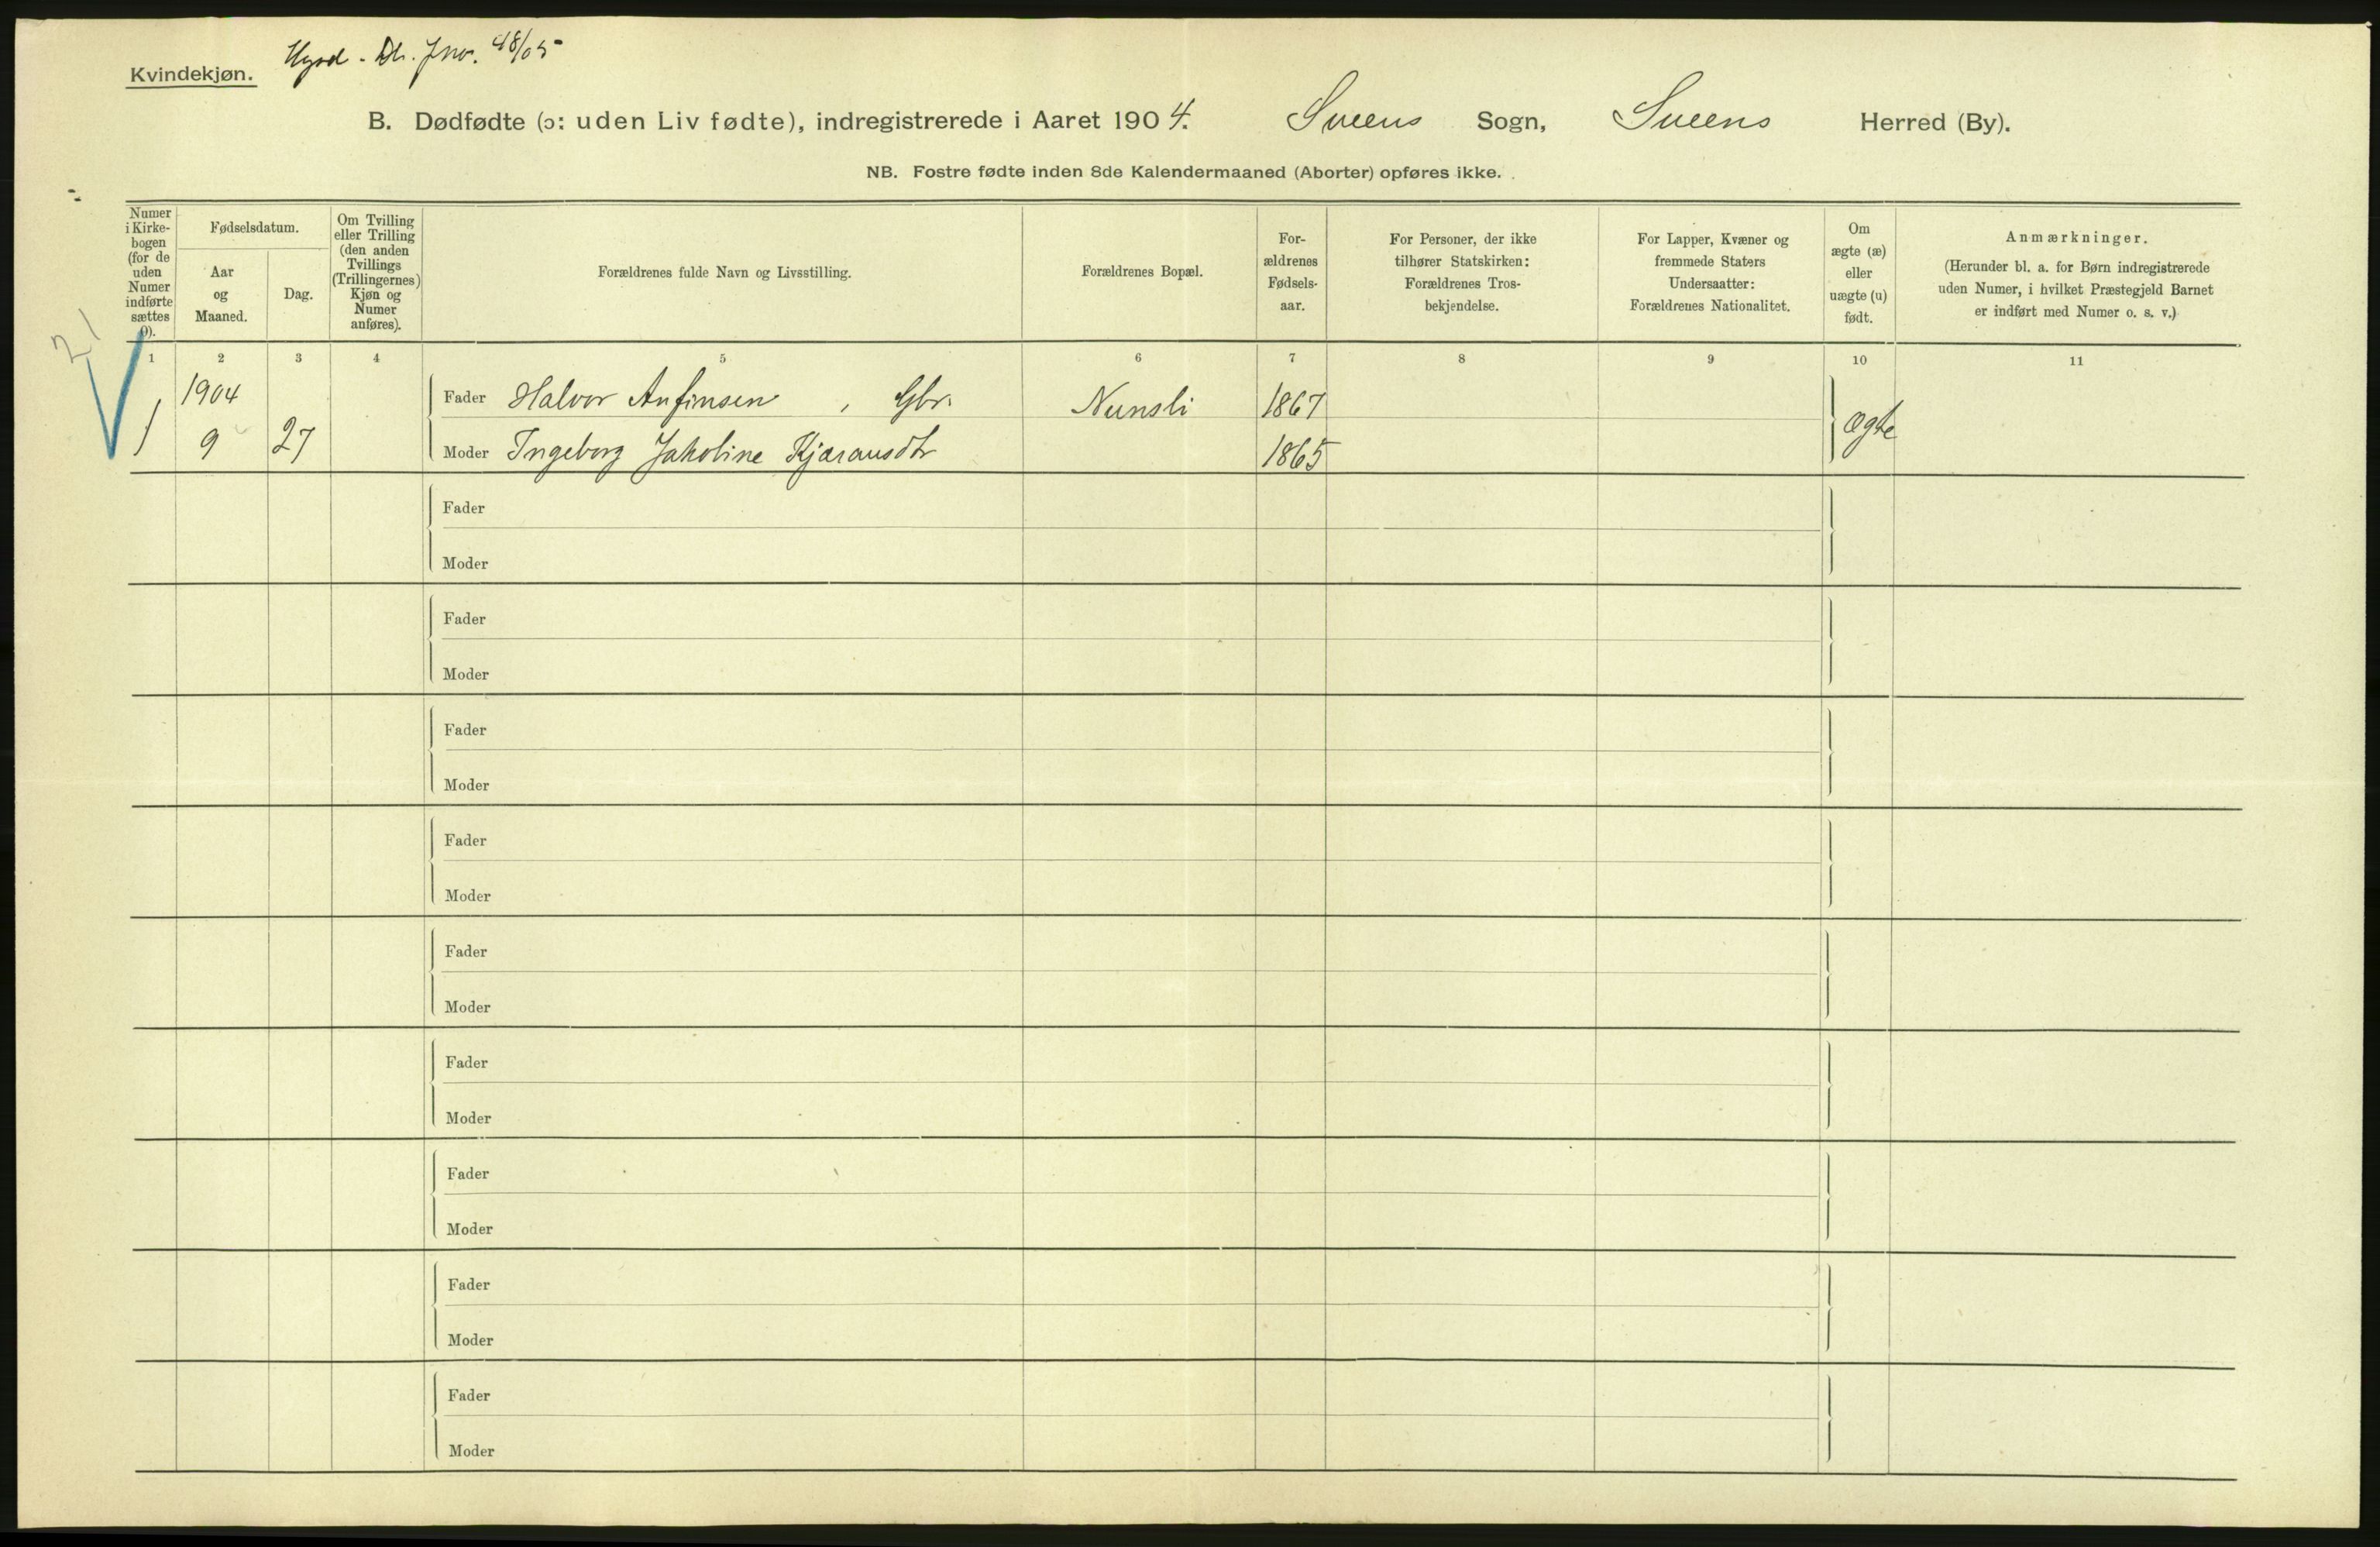 Kvindekjøn.
Jno. 48/05
B. Dødfødte (ɔ: uden Liv fødte), indregistrerede i Aaret 1904. Sveens Sogn, Sveens Herred (By).
NB. Fostre fødte inden 8de Kalendermaaned (Aborter) opføres ikke.
Numer i Kirkebogen (for de uden Numer indførte sættes 0).
Fødselsdatum.
Aar og Maaned.
Dag.
Om Tvilling eller Trilling (den anden Tvillings (Trillingernes) Kjøn og Numer anføres).
Forældrenes fulde Navn og Livsstilling.
Forældrenes Bopæl.
For-
ældrenes
Fødsels-
aar.
For Personer, der ikke
tilhører Statskirken:
Forældrenes Tros-
bekjendelse.
For Lapper, Kvæner og
fremmede Staters
Undersaatter:
Forældrenes Nationalitet.
Om
ægte (æ)
eller
uægte (u)
født.
Anmærkninger.
(Herunder bl. a. for Børn indregistrerede
uden Numer, i hvilket Præstegjeld Barnet
er indført med Numer o. s. v.)
1 2 3 4 5 6 7 8 9 10 11
21
1904 Fader Halvor Anfinsen, Gbr. Nunsli 1867
1 9 27 Moder Ingeborg Jakobine Kjæransdtr 1865 ægte
Fader
Moder
Fader
Moder
Fader
Moder
Fader
Moder
Fader
Moder
Fader
Moder
Fader
Moder
Fader
Moder
Fader
Moder